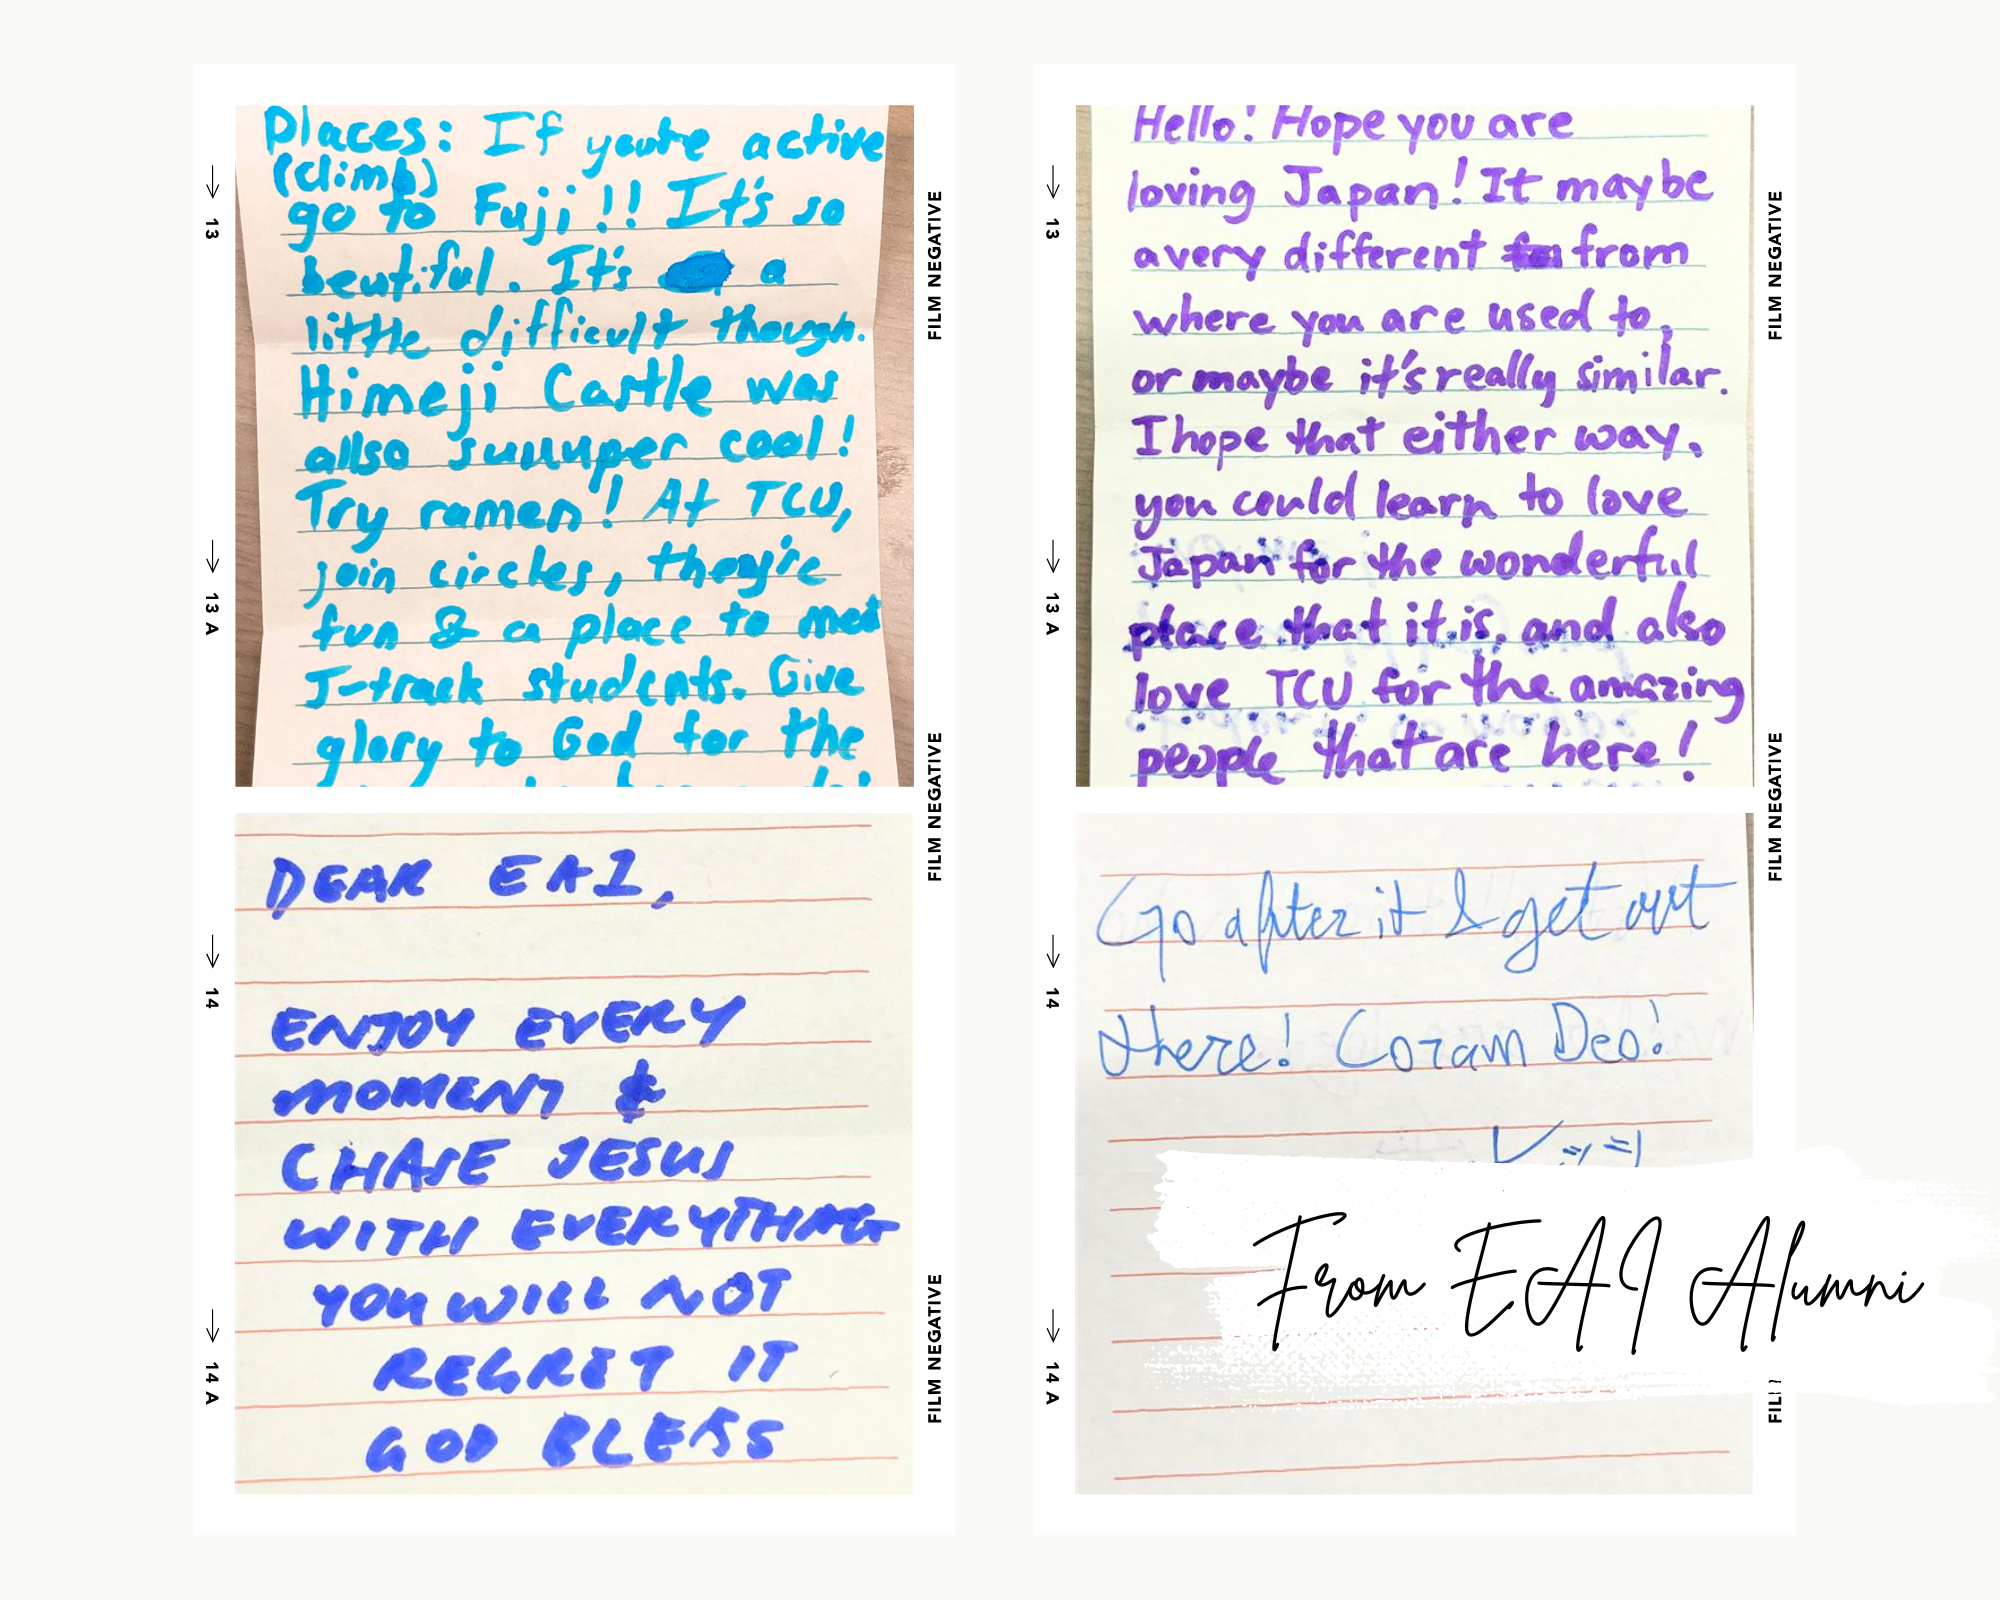 Places: If you're active
(climb)
go to Fuji!! It's so
beutiful. It's a
little difficult though.
Himeji Castle was
allso suuuper cool!
Try ramen! At TCU,
join circles, they're
fun & a place to met
J-track students. Give
glory to God for the
DEAR EAI,
ENJOY EVERY
MOMENT &
CHASE JESUS
WITH EVERYTHING
YOU WILL NOT
REGRET IT
GOD BLESS
↓ 13
↓ 13 A
↓ 14
↓ 14 A
FILM NEGATIVE
FILM NEGATIVE
FILM NEGATIVE
Hello! Hope you are
loving Japan! It maybe
a very different from
where you are used to,
or maybe it's really similar.
I hope that either way,
you could learn to love
Japan for the wonderful
place that it is, and also
love TCU for the amazing
people that are here!
Go after it & get out
there! Coram Deo!
From EAI Alumni
↓ 13
↓ 13 A
↓ 14
↓ 14 A
FILM NEGATIVE
FILM NEGATIVE